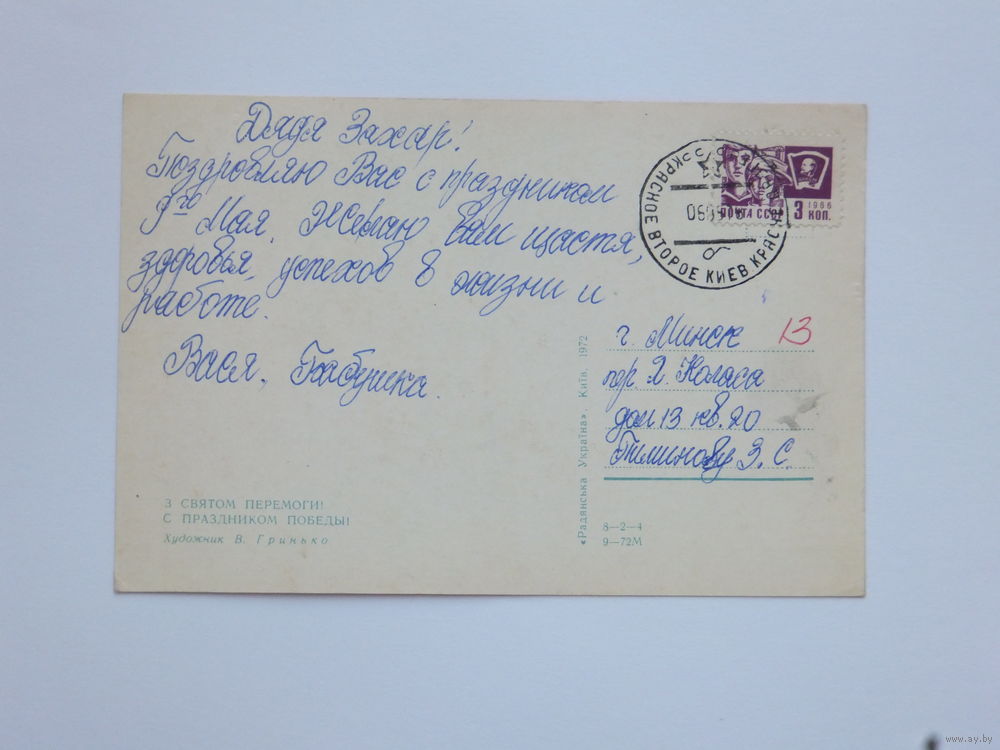 Дядя Захар!
Поздровляю Вас с праздником
9го Мая. Желаю вам щастя,
здоровья, успехов в жизни и
работе.
Вася, Бабушка.
З СВЯТОМ ПЕРЕМОГИ!
С ПРАЗДНИКОМ ПОБЕДЫ!
Художник В. Гринько
«Радянська Україна». Київ. 1972
ПОЧТА СССР
1966
3 КОП.
КРАСНОЕ ВТОРОЕ КИЕВ
г. Минск
13
пр Я. Коласа
дом 13 кв. 20
З. С.
8—2—4
9—72М
www.ay.by